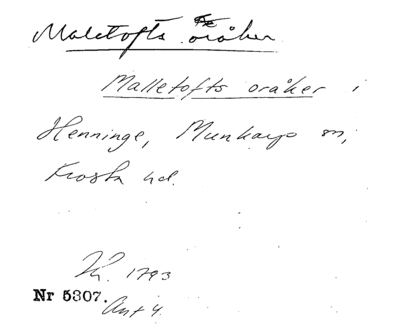 Maletofts oråker
Malletofts oråker i
Henninge, Munkarps sn,
Frosta hd.
1793
Nr 5307.
Akt 4